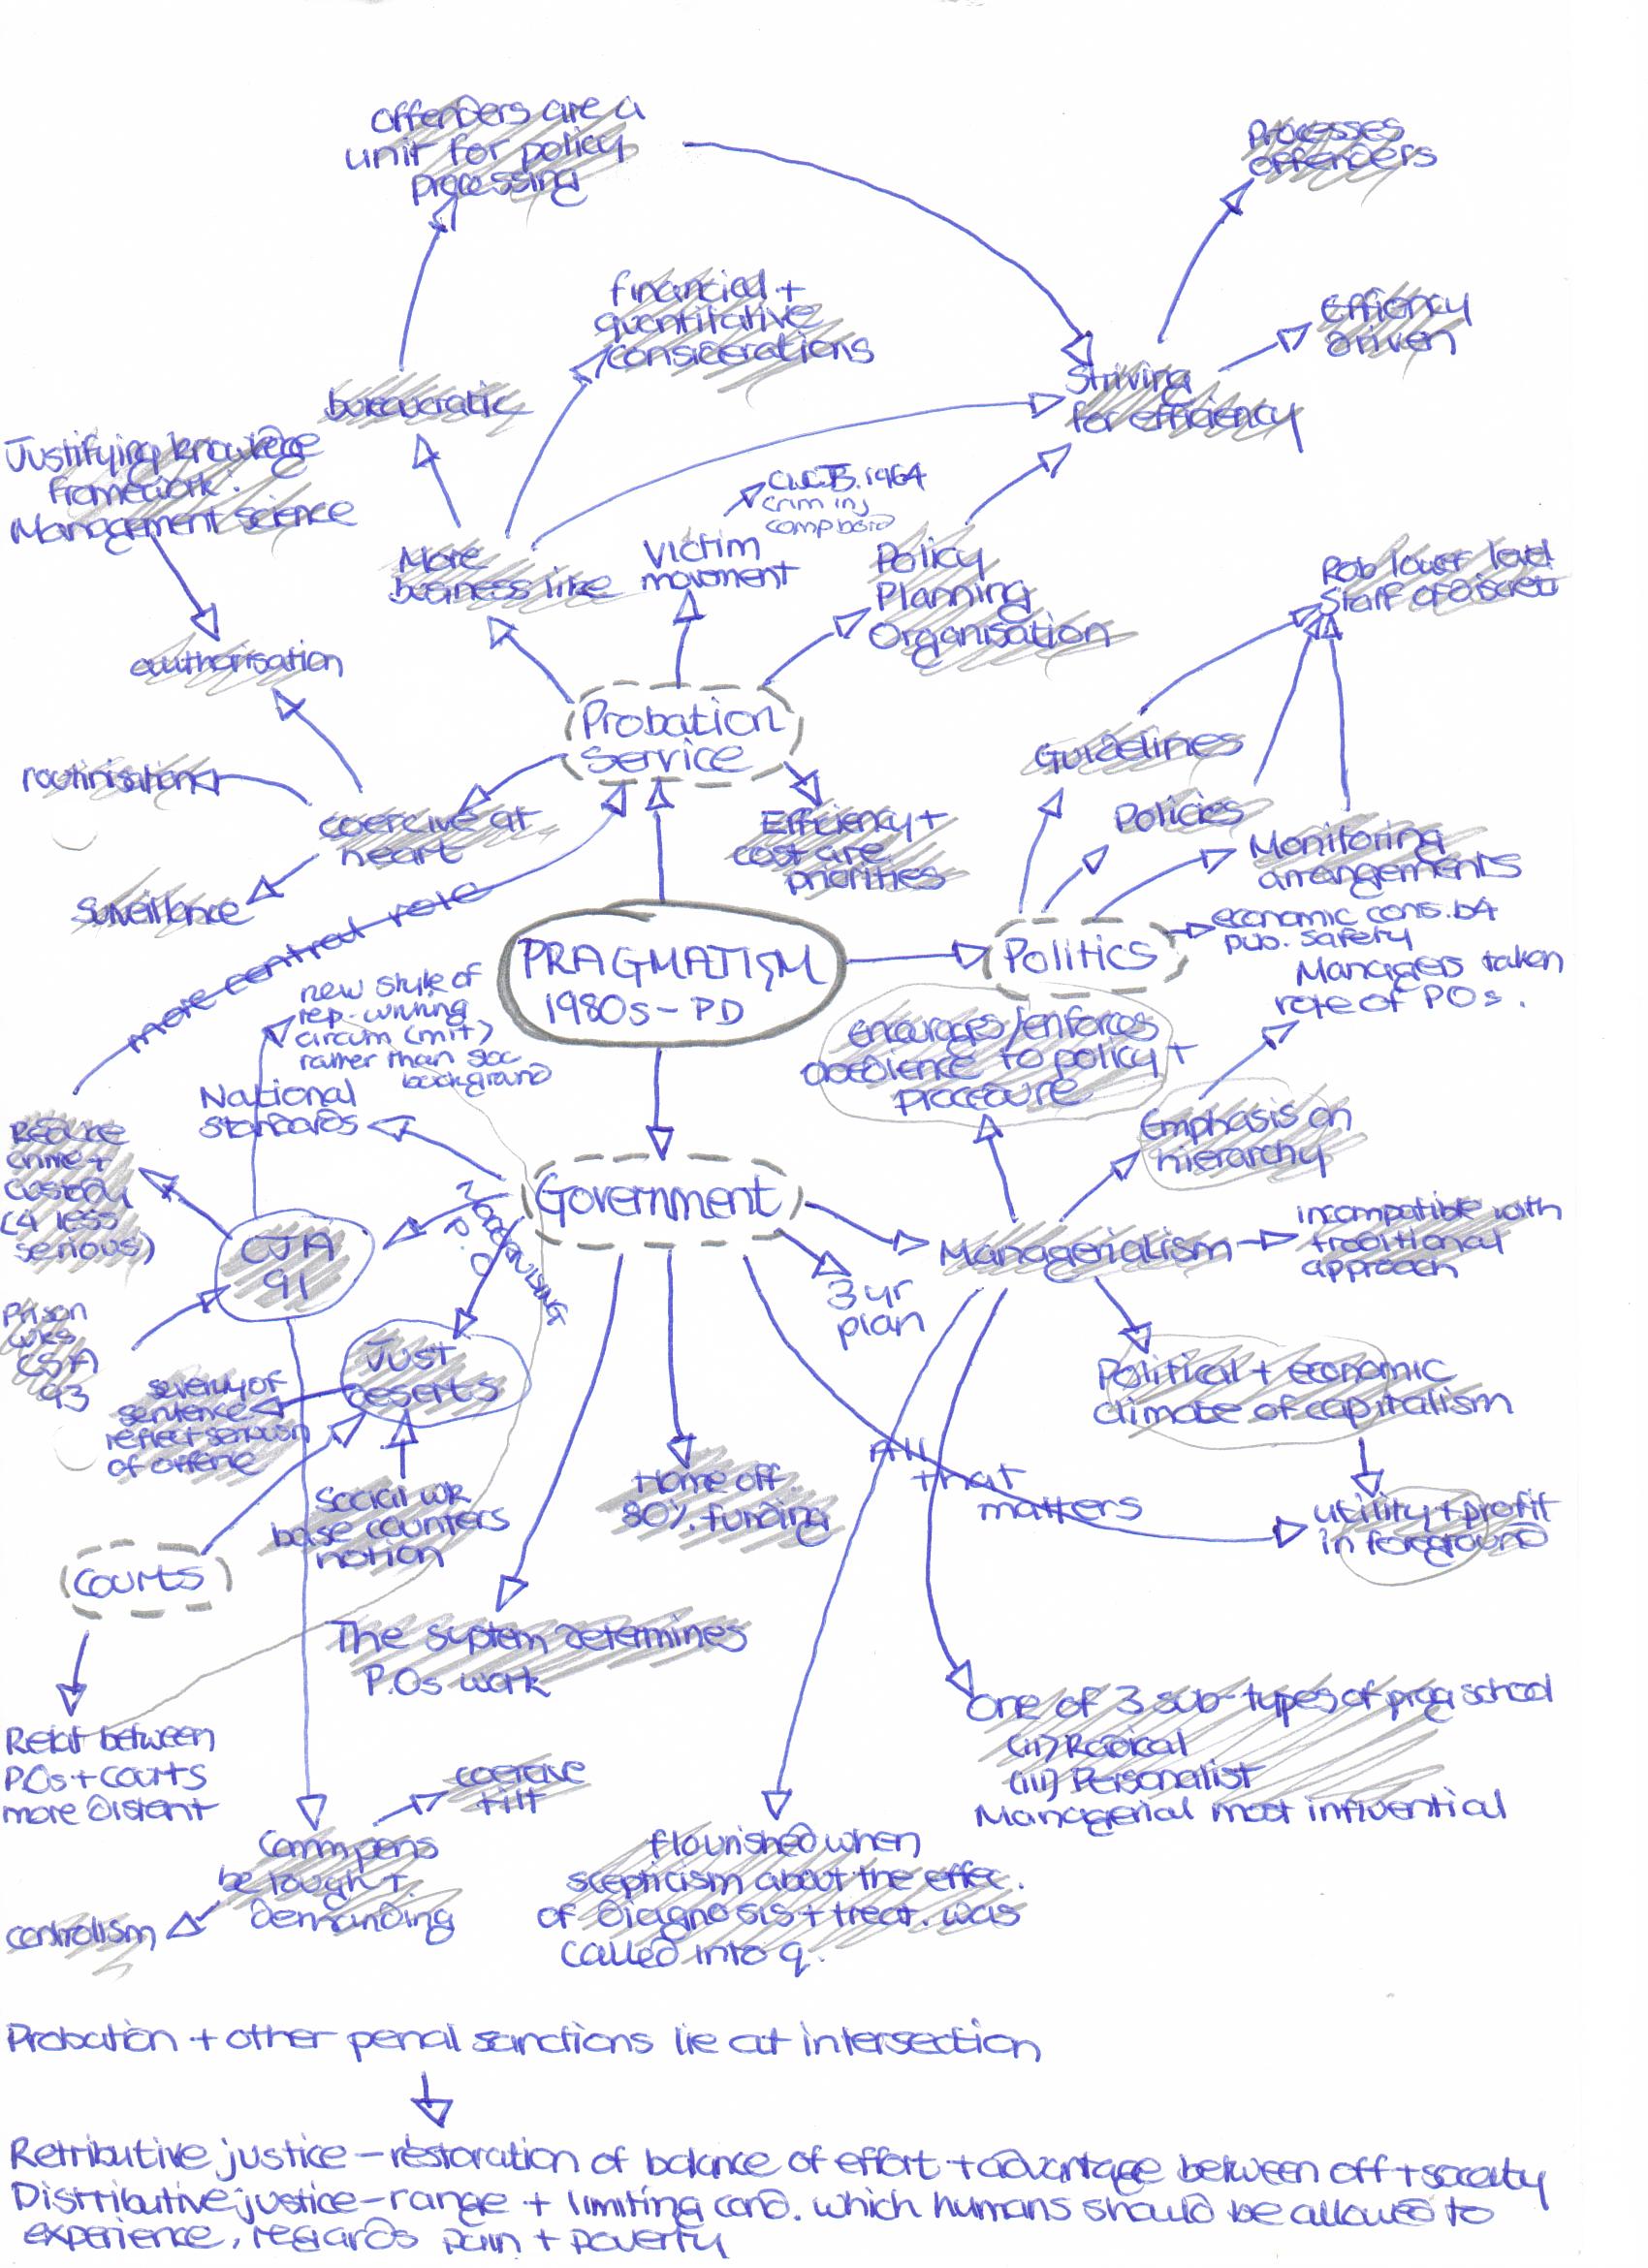 Offenders are a
unit for policy
processing
Processes
offencers
financial +
quantitative
considerations
Efficncy
driven
bureaucratic
Striving
for efficiency
Justifying knowledge
framework:
Management science
C.I.C.B. 1964
crim inj
comp board
More
business like
Victim
movment
Policy
Planning
Organisation
Rob lower level
Staff of discret
authorisation
Probation
Service
Guidelines
routinisation
coercive at
heart
Efficiency +
cost are
priorities
Policies
Monitoring
arrangements
Surveillance
more central role
PRAGMATISM
1980s - PD
Politics
economic cons. b4
pub. safety
Managers taken
role of POs.
new style of
rep. writing
circum (mit)
rather than soc
background
encourages/enforces
obedience to policy +
procedure
National
Standards
Emphasis on
hierarchy
Reduce
crime +
custody
(4 less
serious)
Government
CJA
91
Managerialism
incompatible with
traditional
approach
3 yr
plan
Prison
wks
CJA
93
Just
Deserts
severity of
sentence
reflect serious
of offence
Political + economic
climate of capitalism
All
that
matters
Social wk
base counters
notion
Home off.
80% funding
utility + profit
in foreground
Courts
The system determines
P.Os work
One of 3 sub-types of prag school
(ii) Radical
(iii) Personalist
Managerial most influential
Relat between
POs + courts
more distent
coercive
tilt
Comm pens
be tough +
demanding
controllism
flourished when
scepticism about the effec.
of diagnosis + treat. was
called into q.
Probation + other penal sanctions lie at intersection
Retributive justice - restoration of balance of effort + advantage between off + society
Distributive justice - range + limiting cond. which humans should be allowed to
experience, regards pain + poverty